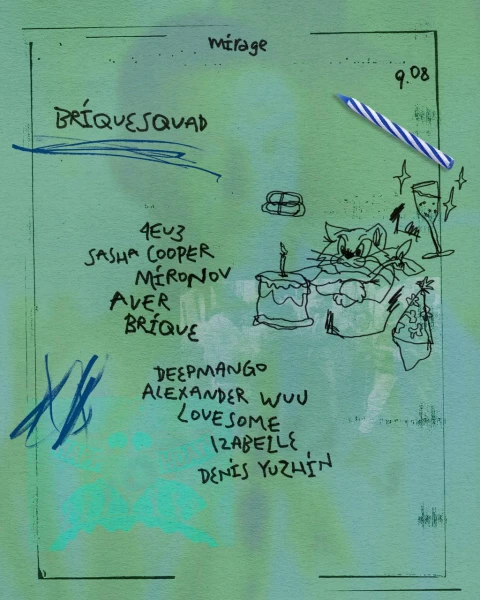 mirage
9.08
BRIQUESQUAD
4EV3
SASHA COOPER
MIRONOV
AVER
BRIQUE
DEEPMANGO
ALEXANDER WUU
LOVESOME
IZABELLE
DENIS YUZHIN